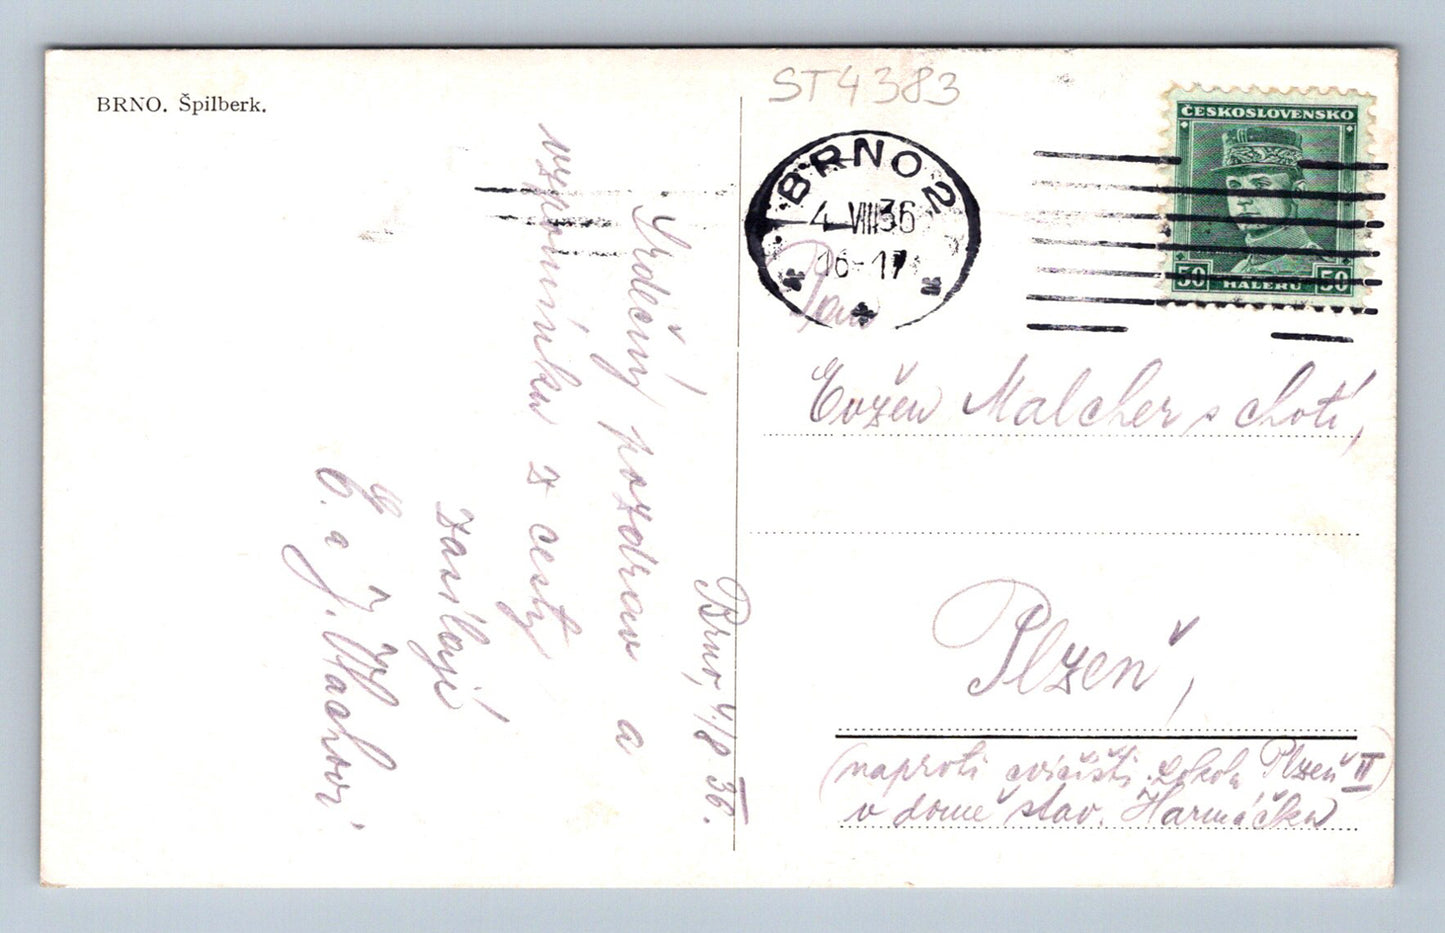 BRNO. Špilberk.
ST4383
BRNO 2
4 VIII 36
16-17
ČESKOSLOVENSKO
50 HALÉRŮ 50
Brno, 4/8 36.
Srdečný pozdrav a
vzpomínku z cesty
zasílají
E. a J.
Pan
Evžen Malcher s chotí,
Plzeň,
(naproti cvičišti Sokola Plzeň II)
v domě stav. Harmáčka